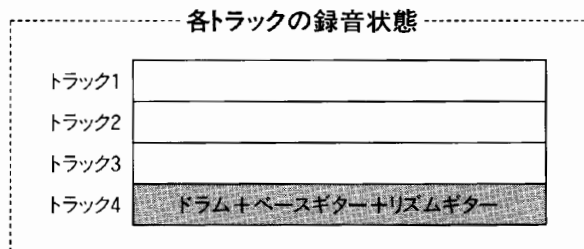 各トラックの録音状態
トラック1
トラック2
トラック3
トラック4 ドラム+ベースギター+リズムギター